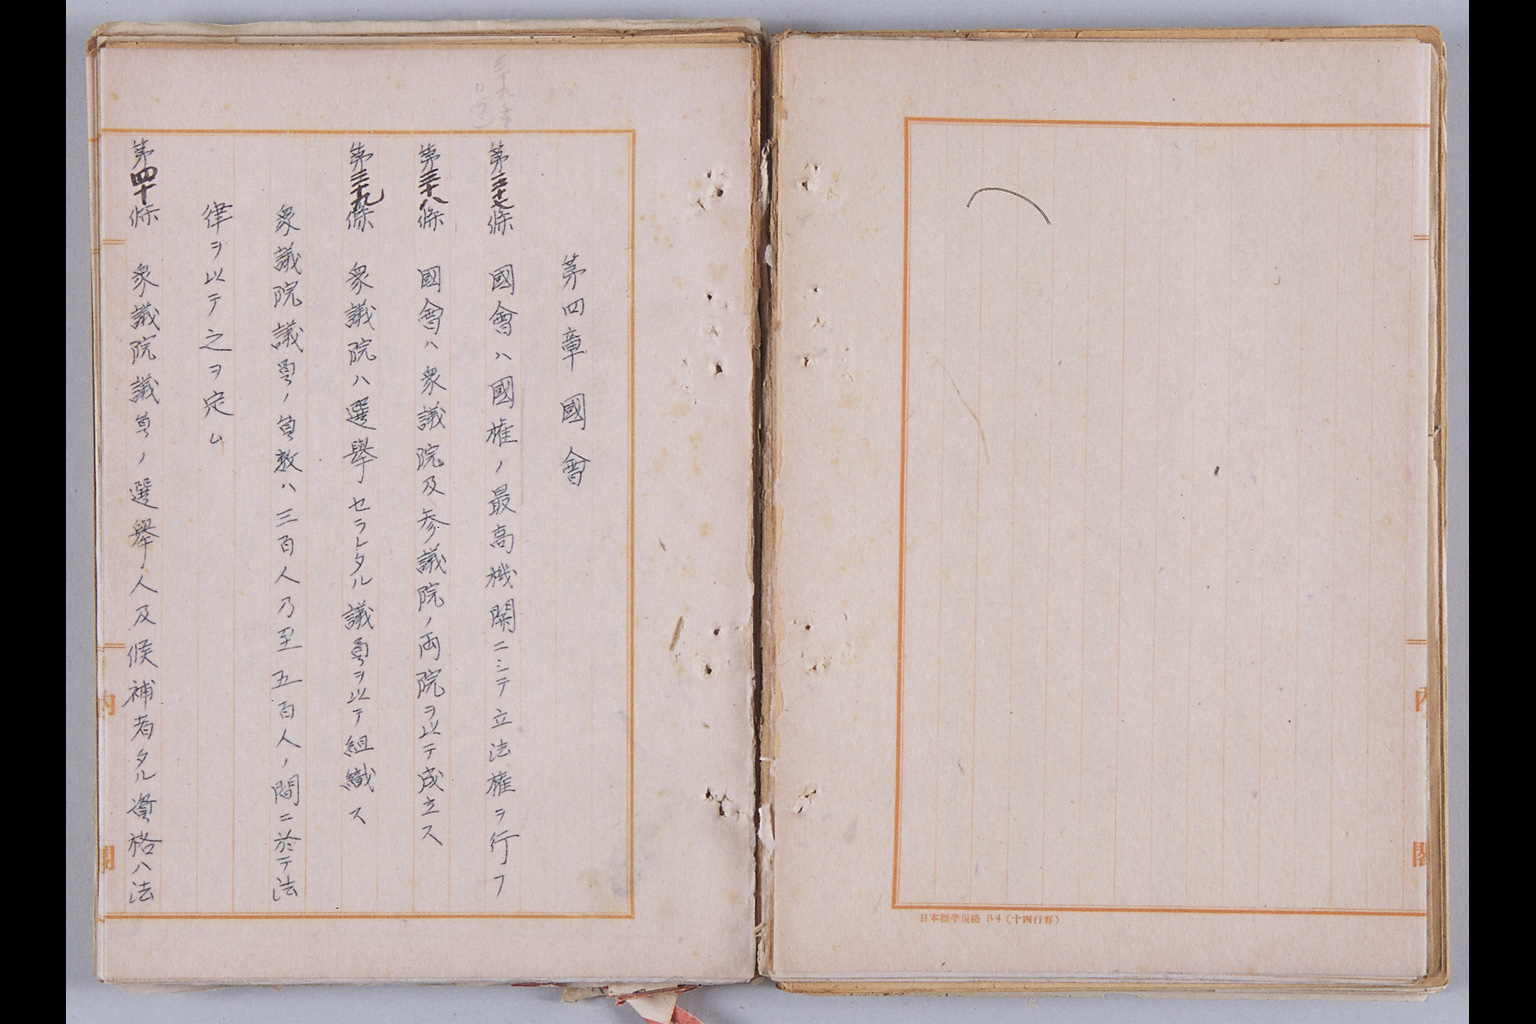 第四章 國會
第三十七條 國會ハ國権ノ最高機関ニシテ立法権ヲ行フ
第三十八條 國會ハ衆議院及参議院ノ両院ヲ以テ成立ス
第三十九條 衆議院ハ選挙セラレタル議員ヲ以テ組織ス
衆議院議員ノ員数ハ三百人乃至五百人ノ間ニ於テ法
律ヲ以テ之ヲ定ム
第四十條 衆議院議員ノ選挙人及候補者タル資格ハ法
内閣
日本標準規格 B4 (十四行罫)
内閣